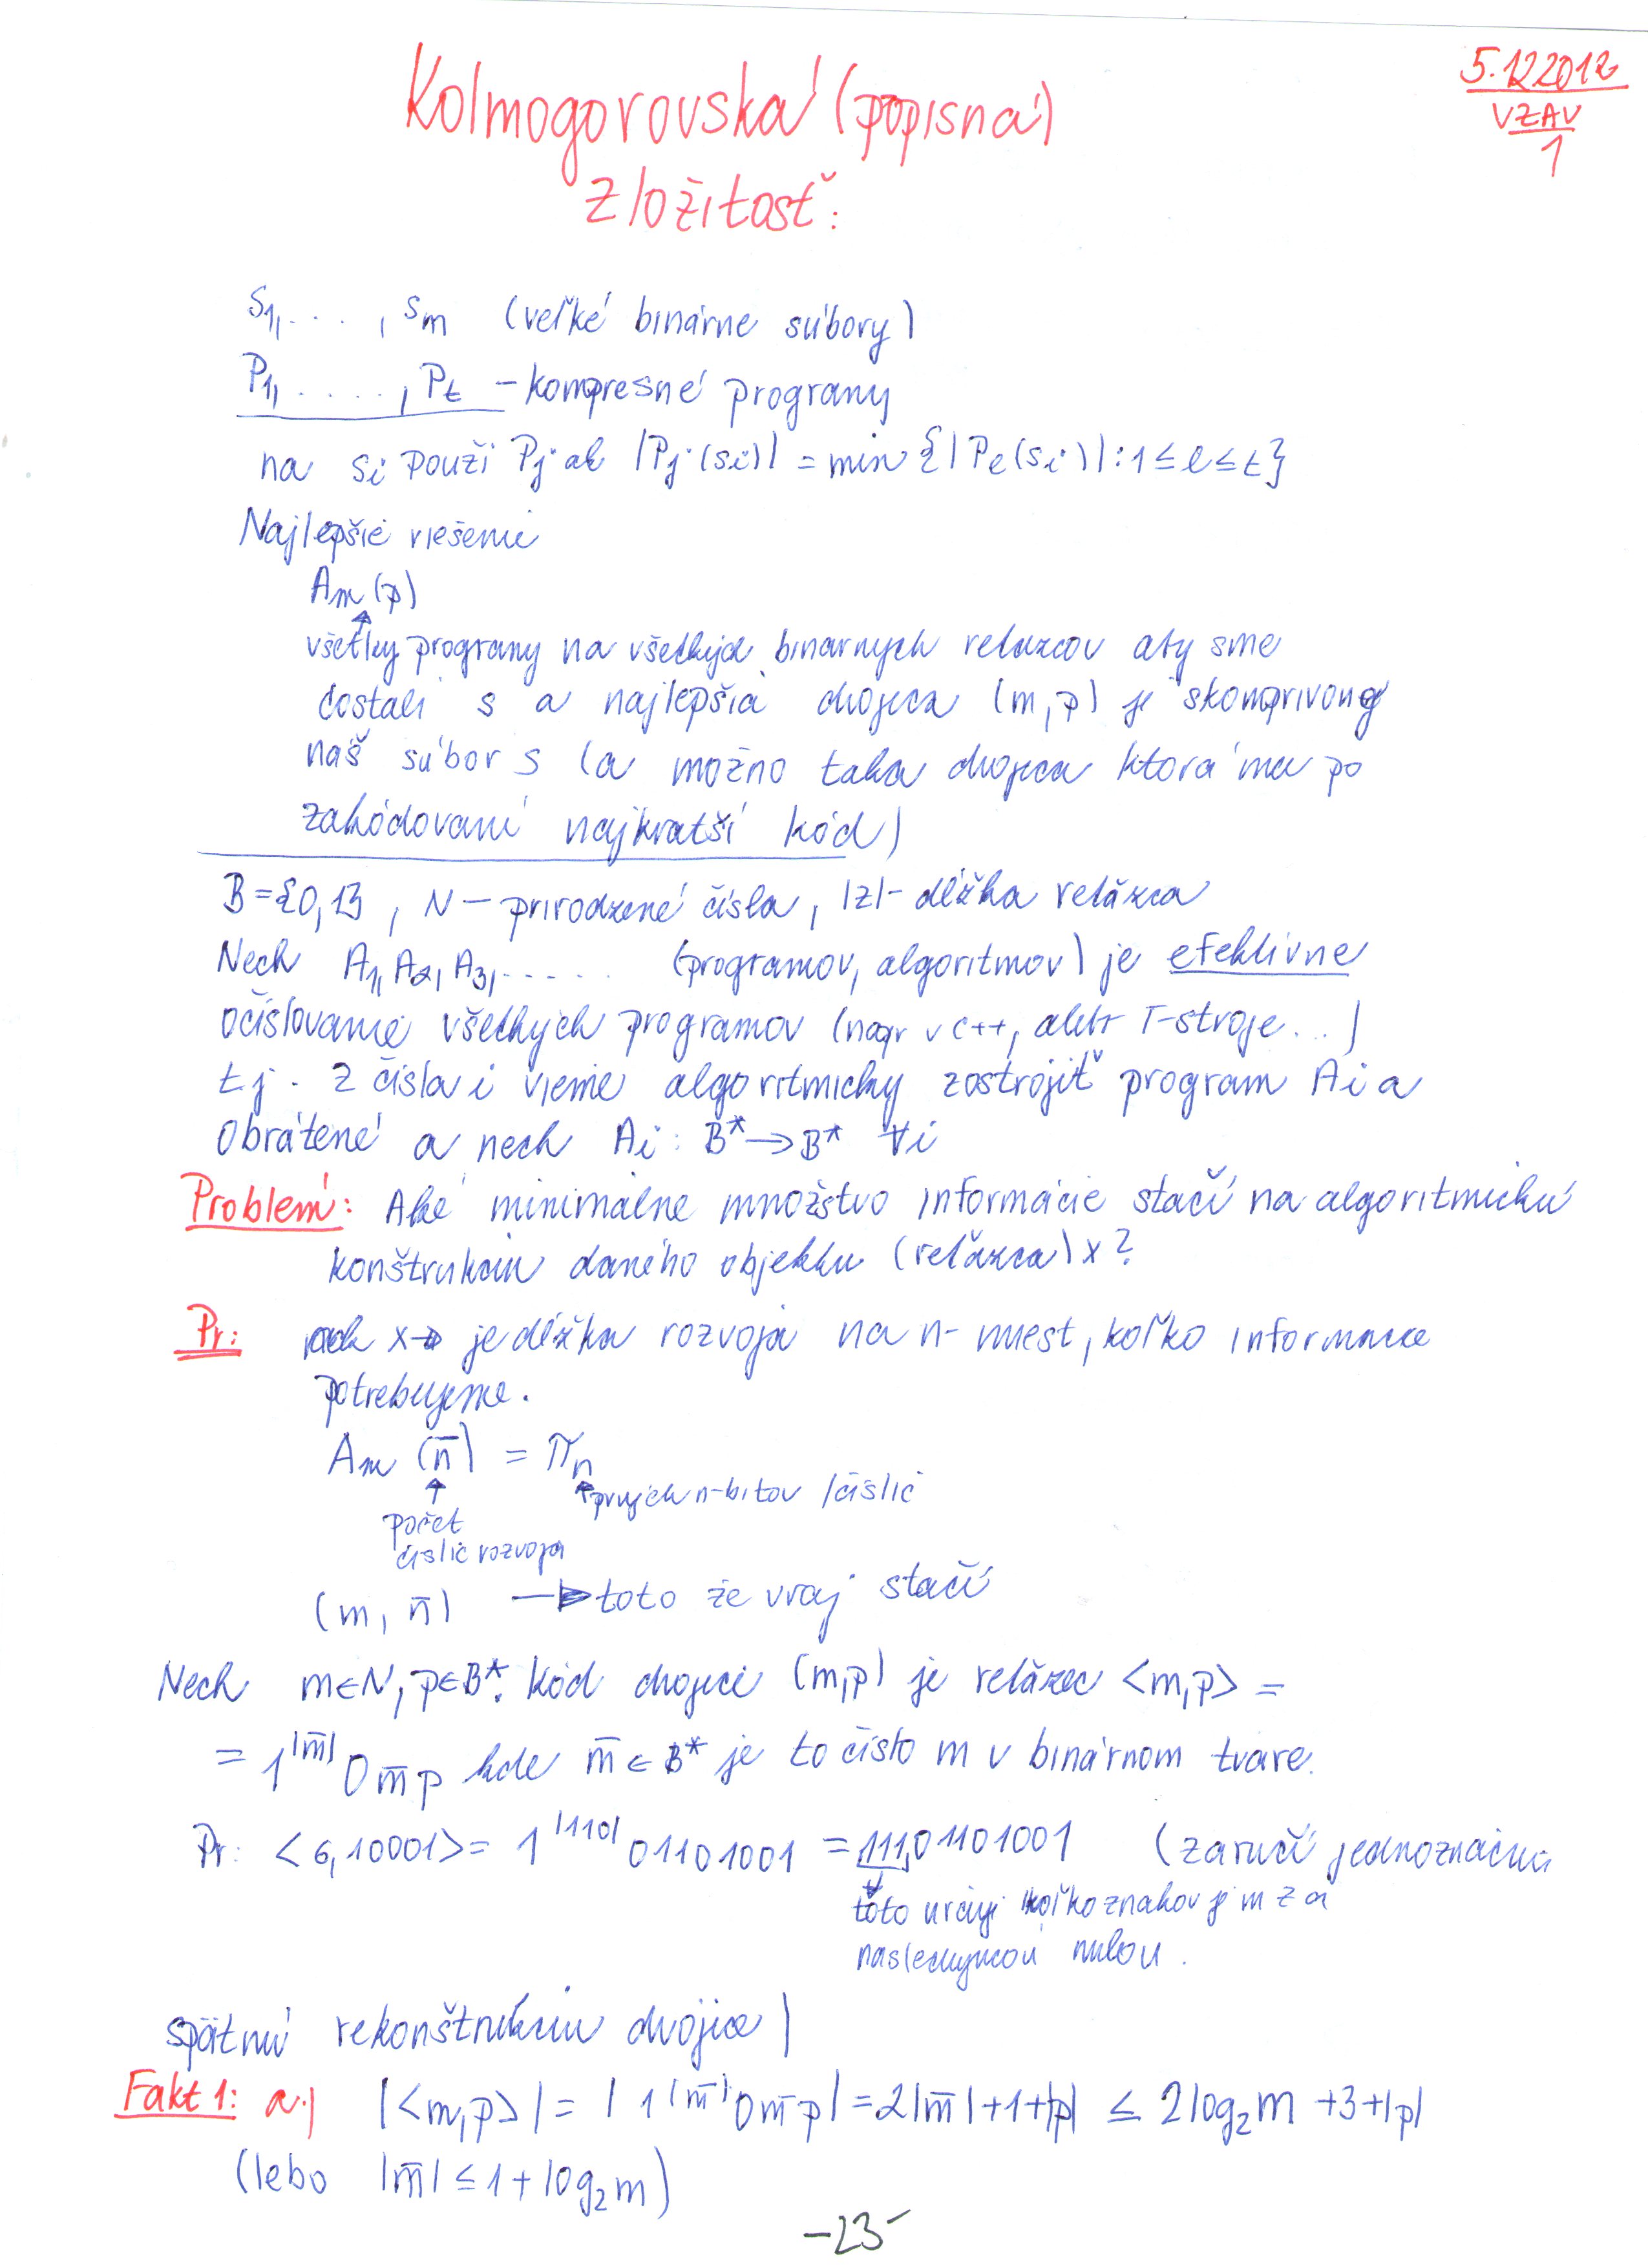 5.12.2012
VZAV
1
Kolmogorovská (popisná)
zložitosť:
S1, . . . , Sm (veľké binárne súbory)
P1, . . . . , Pt – kompresné programy
na si použi Pj ak |Pj(si)| = min {|Pe(si)| : 1 ≤ l ≤ t}
Najlepšie riešenie
Am (p)
všetky programy na všetkých binarnych reťazcov aby sme
dostali s a najlepšia dvojica (m, p) je
náš súbor S (a možno taká dvojica ktorá má po
zakódovaní najkratší kód)
B = {0,1} , N – prirodzené čísla, |z| – dĺžka reťazca
Nech A1, A2, A3, . . . . . (programov, algoritmov) je efektívne
očíslovanie všetkých programov (napr v C++, alebo T-stroje...)
t.j. z čísla i vieme algoritmicky zostrojiť program Ai a
obrátene a nech Ai : B* → B* ∀i
Problém: Aké minimálne množstvo informácie stačí na algoritmickú
konštrukciu daného objektu (reťazca) x?
Pr: nech x je dĺžka rozvoja na n-miest, koľko informácie
potrebujeme.
Am (n̄) = πn
prvých n-bitov /číslic
počet
číslic rozvoja
(m, n̄) → toto že vraj stačí
Nech m∈N, p∈B*. Kód dvojice (m,p) je reťazec <m,p> =
= 1^|m̄| 0 m̄ p kde m̄ ∈ B* je to číslo m v binárnom tvare.
Pr: <6,10001> = 1^|110| 01101001 = 11101101001 (zaručí jednoznačnú
toto určuje koľko znakov je m za
nasledujúcou nulou.
spätnú rekonštrukciu dvojice)
Fakt 1: a.) |<m,p>| = | 1^|m̄| 0 m̄ p| = 2|m̄|+1+|p| ≤ 2log₂m +3+|p|
(lebo |m̄| ≤ 1 + log₂m)
-23-